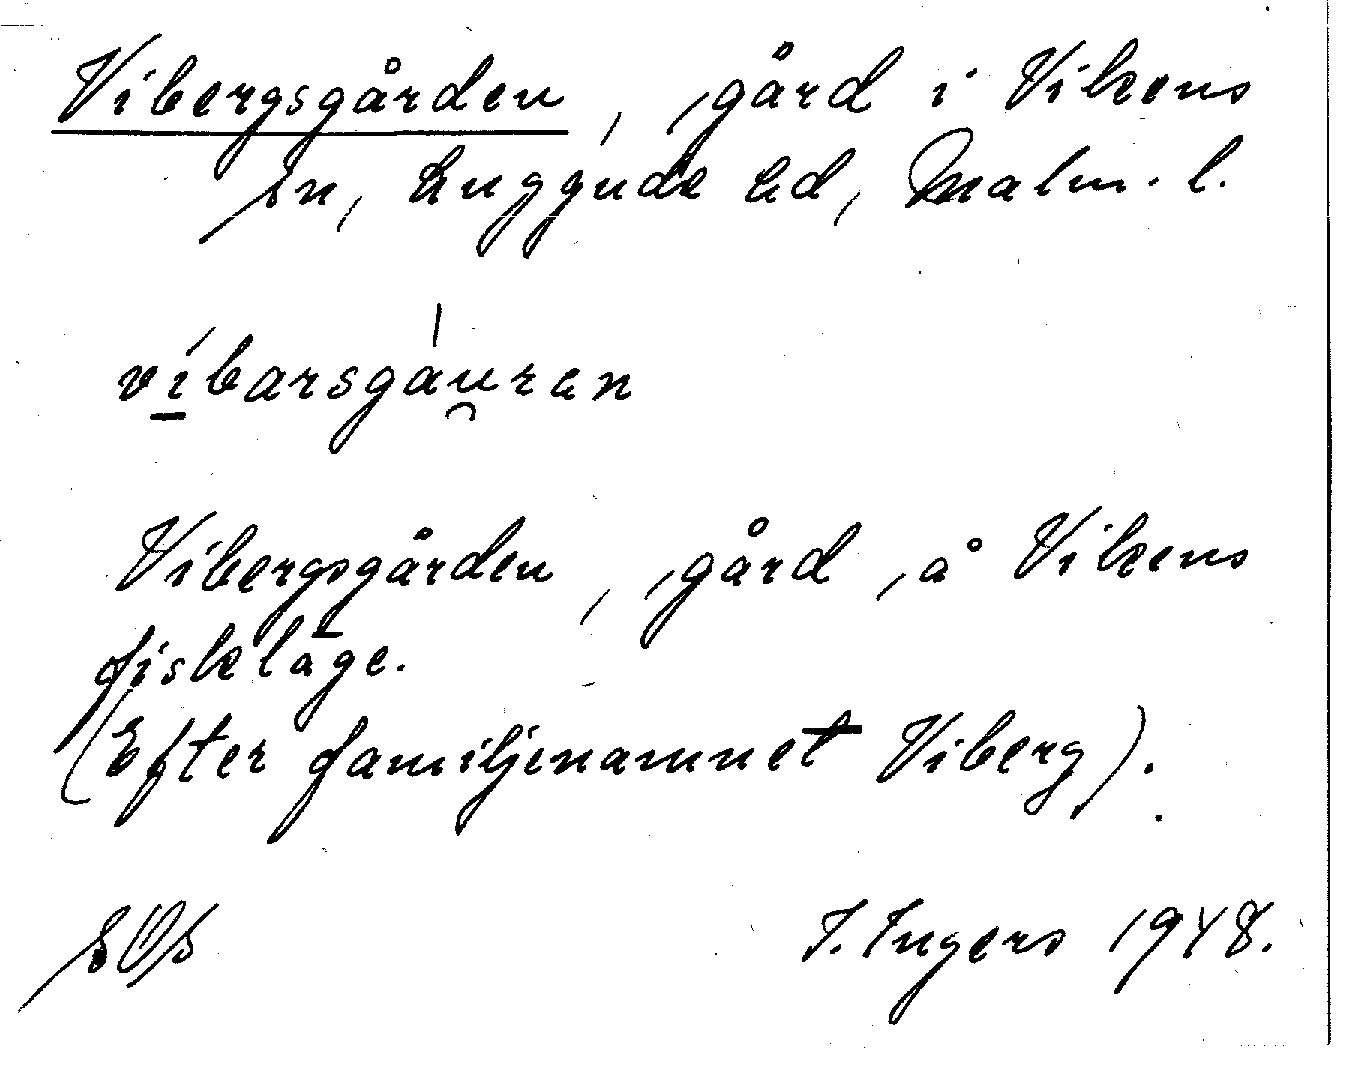 Vibergsgården, gård i Vikens
sn, Luggude hd, Malm. l.
vi̱barsgáu̯ran
Vibergsgården, gård å Vikens
fiskeläge.
(Efter familjenamnet Viberg).
I. Ingers 1948.